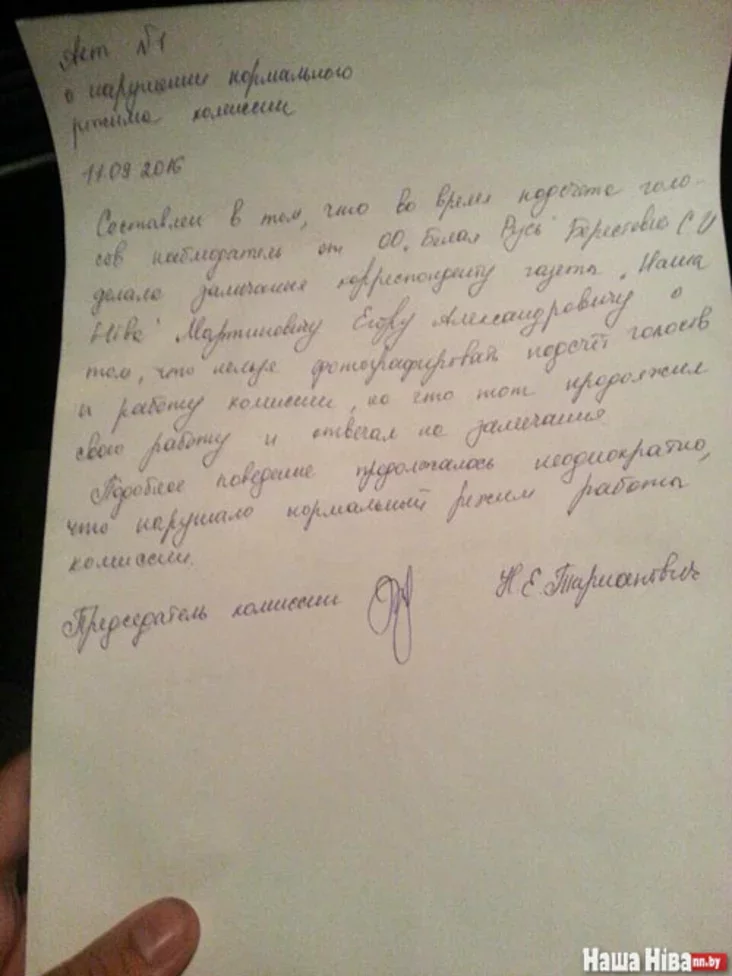 Акт №1
о нарушении нормального
режима комиссии
11.09 2016
Составлен в том, что во время подсчёта голо-
сов наблюдатель от ОО „Белая Русь" С И
делала замечания корреспонденту газета „Наша
Ніва" Мартиновичу Егору Александровичу о
том, что нельзя фотографировать подсчёт голосов
и работу комиссии, но что тот продолжил
свою работу и отвечал на замечания.
Подобное поведение продолжалось неоднократно,
что нарушало нормальный режим работы
комиссии.
Председатель комиссии Н.Е.
Наша Ніва nn.by